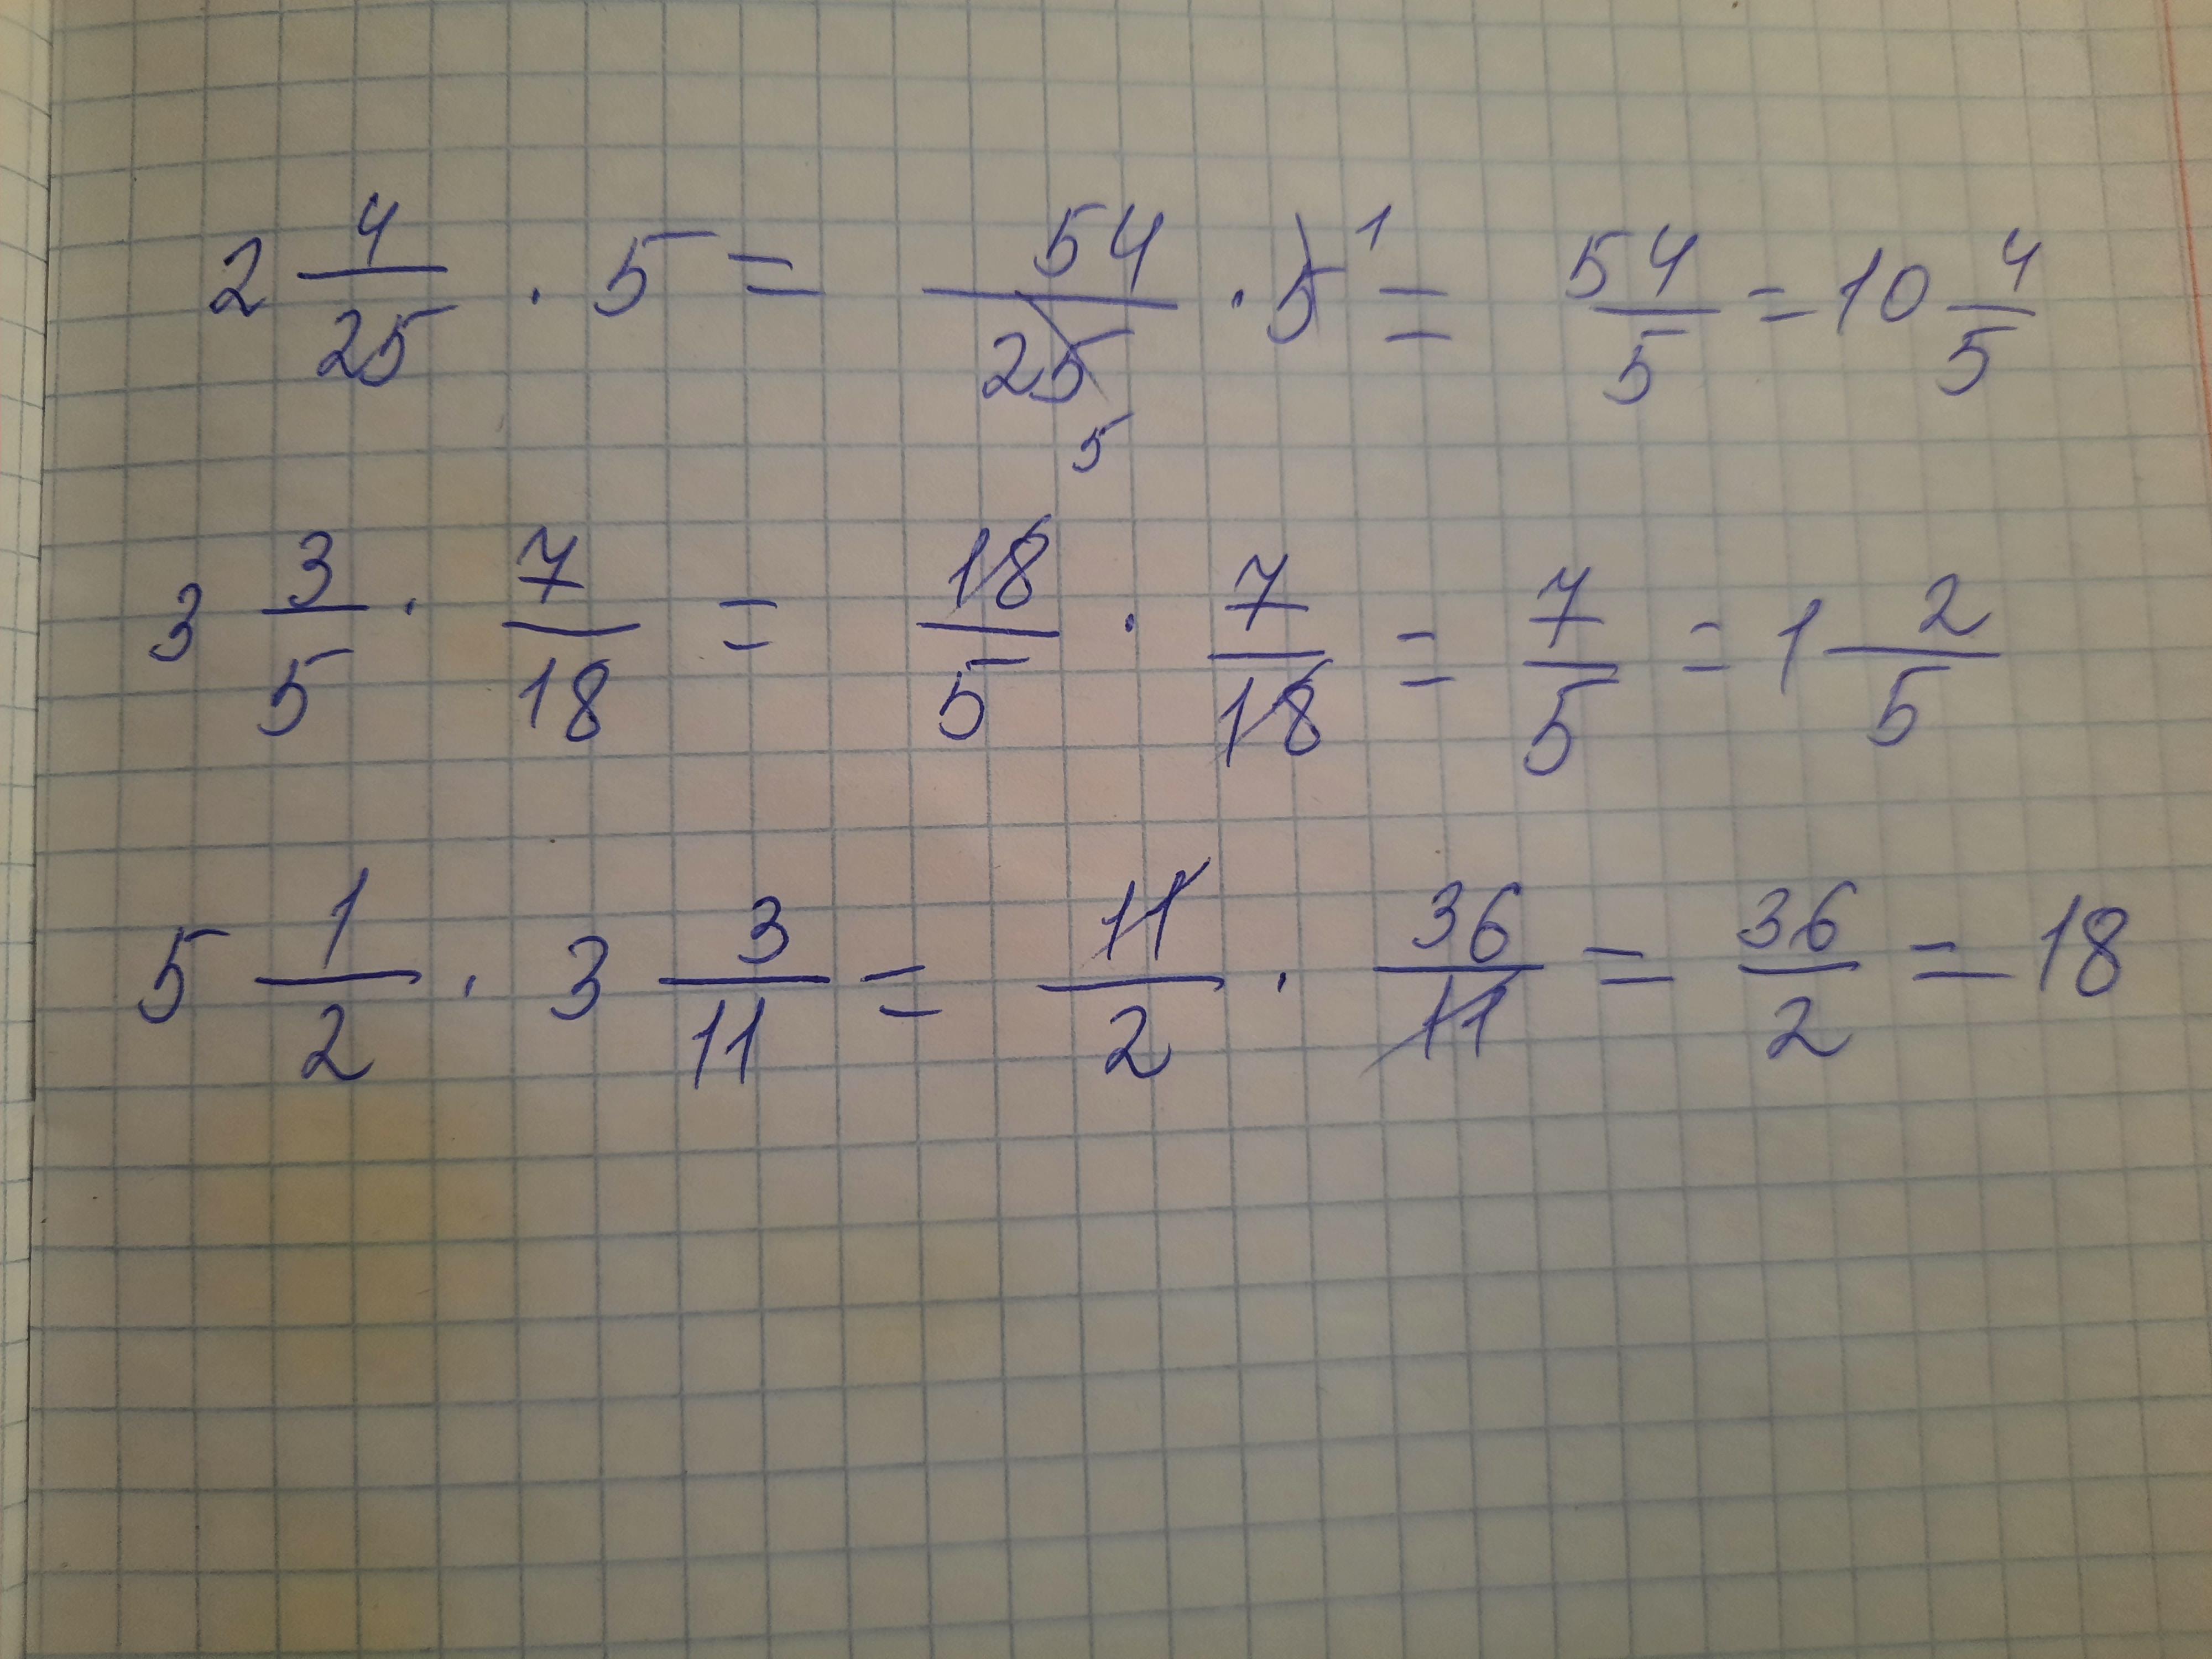 2 4/25 · 5 = 54/25 5 · 5 1 = 54/5 = 10 4/5
3 3/5 · 7/18 = 18/5 · 7/18 = 7/5 = 1 2/5
5 1/2 · 3 3/11 = 11/2 · 36/11 = 36/2 = 18